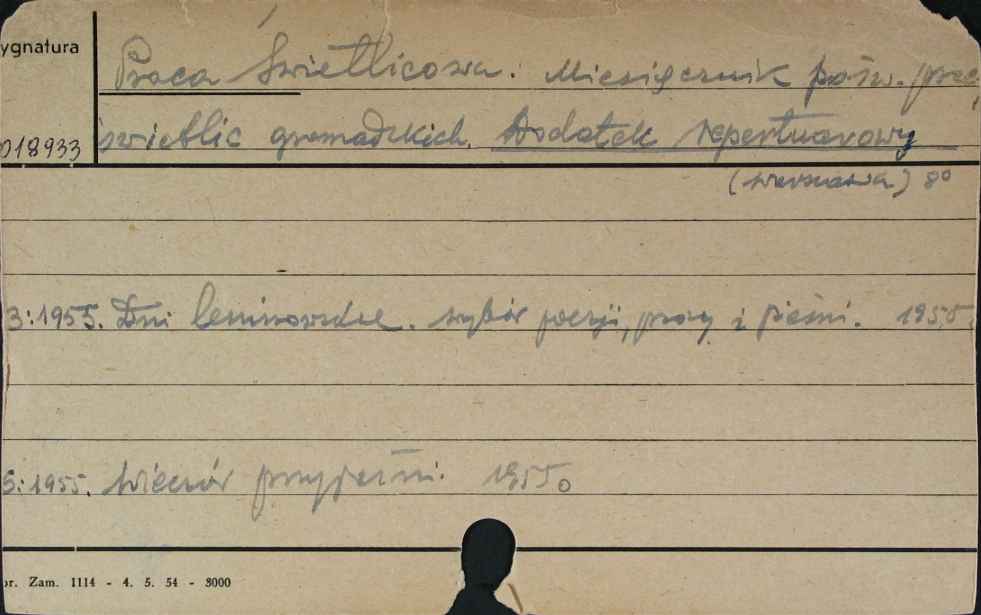 ygnatura
Praca Świetlicowa. Miesięcznik pośw. prac
018933 świetlic gromadzkich. Dodatek repertuarowy
(Warszawa) 8º
3:1955. Dni leninowskie. Wybór poezji, prozy i pieśni. 1955.
5:1955. Wieczór przyjaźni. 1955.
or. Zam. 1114 - 4. 5. 54 - 3000